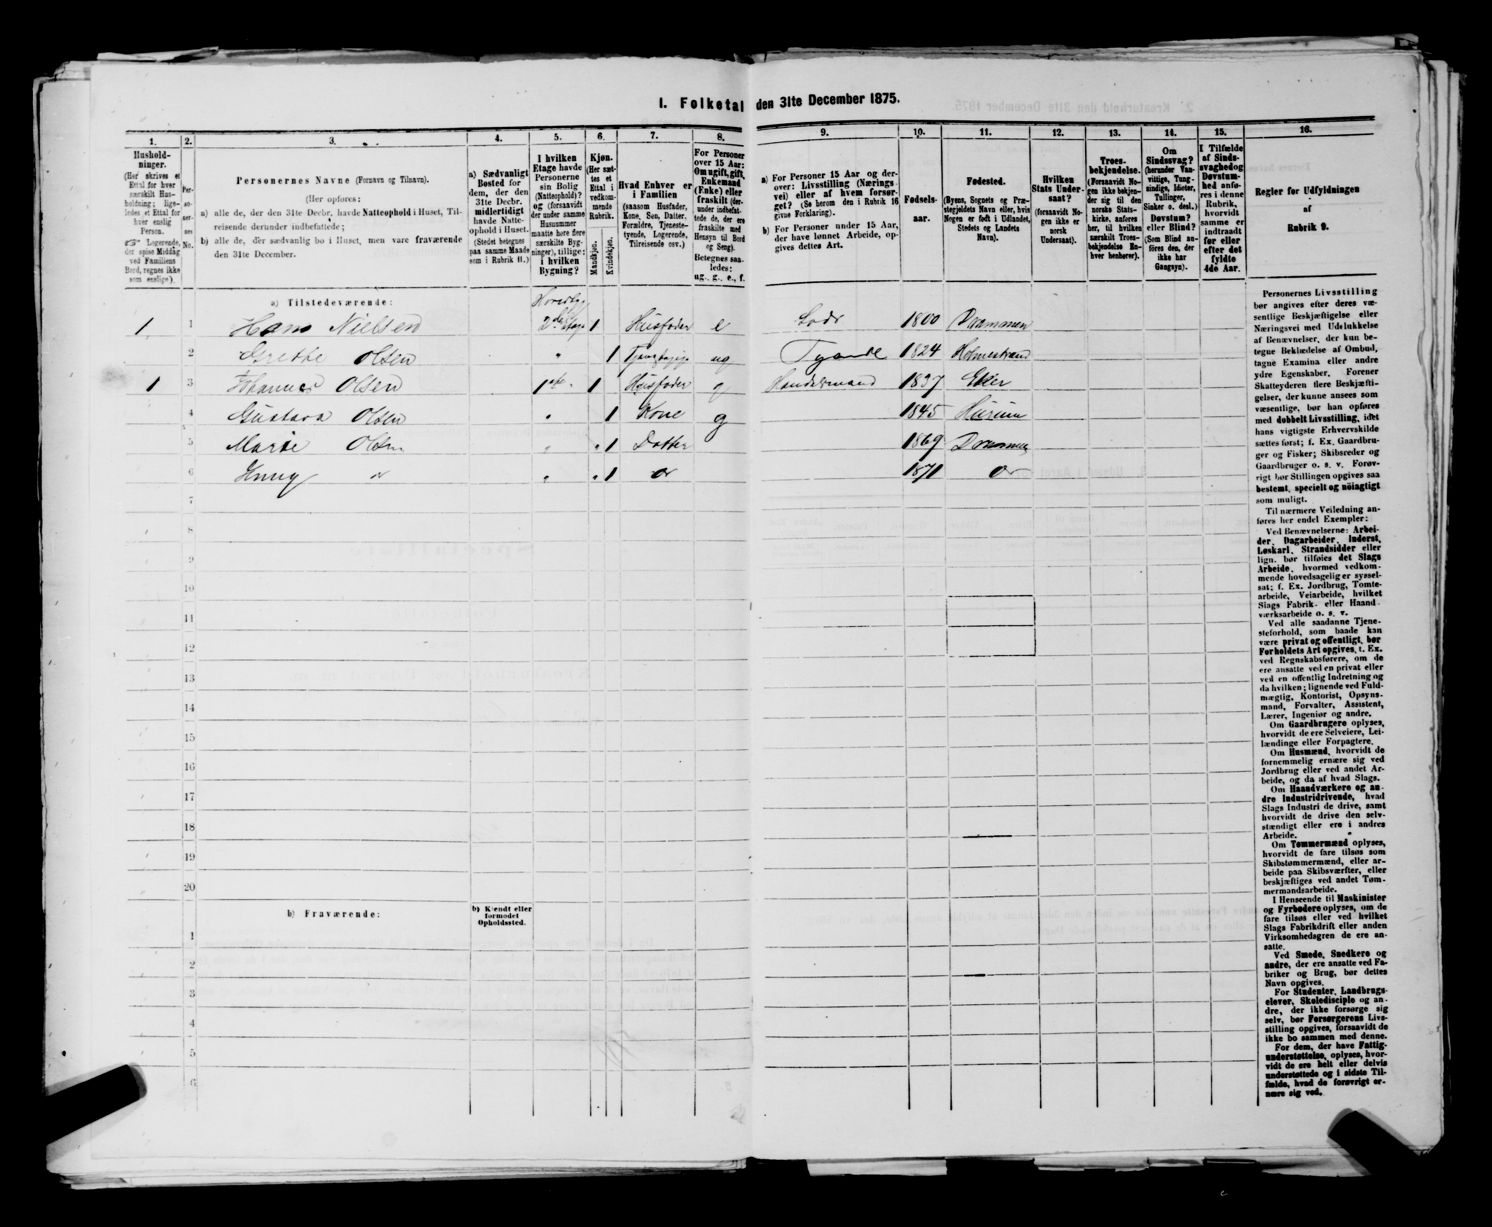 I. Folketal den 31te December 1875.
1. 2. 3. 4. 5. 6. 7. 8. 9. 10. 11. 12. 13. 14. 15. 16.
Hushold-
ninger.
(Her skrives et
Ettal for hver
særskilt Hus-
holdning; lige-
ledes et Ettal for
hver enslig
Person.
☞ Logerende,
der spise Middag
ved Familiens
Bord, regnes ikke
som enslige).
Per-
so-
ner-
nes
No.
Personernes Navne (Fornavn og Tilnavn).
(Her opføres:
a) alle de, der den 31te Decbr. havde Natteophold i Huset, Til-
reisende derunder indbefattede;
b) alle de, der sædvanlig bo i Huset, men vare fraværende
den 31te December.
a) Sædvanligt
Bosted for
dem, der den
31te Decbr.
midlertidigt
havde Natte-
ophold i Huset.
(Stedet betegnes
paa samme Maade
som i Rubrik 11.)
I hvilken
Etage havde
Personerne
sin Bolig
(Natteophold)?
og (forsaavidt
der under samme
Husnummer
maatte høre flere
særskilte Byg-
ninger), tillige:
i hvilken
Bygning?
Kjøn.
(Her sæt-
tes et
Ettal i
vedkom-
mende
Rubrik.
Mandkjøn.
Kvindekjøn.
Hvad Enhver er
i Familien
(saasom Husfader,
Kone, Søn, Datter,
Forældre, Tjeneste-
tyende, Logerende,
Tilreisende osv.)
For Personer
over 15 Aar:
Om ugift, gift,
Enkemand
(Enke) eller
fraskilt (der-
under indbefat-
tede de, der ere
fraskilte med
Hensyn til Bord
og Seng).
Betegnes saa-
ledes:
ug., g., e., f.
a) For Personer 15 Aar og der-
over: Livsstilling (Nærings
vei) eller af hvem forsør-
get? (Se herom den i Rubrik 16
givne Forklaring).
b) For Personer under 15 Aar,
der have lønnet Arbeide, op-
gives dettes Art.
Fødsels-
aar.
Fødested.
(Byens, Sognets og Præ-
stegjeldets Navn eller, hvis
Nogen er født i Udlandet,
Stedets og Landets
Navn).
Hvilken
Stats Under-
saat?
(forsaavidt No-
gen ikke er
norsk
Undersaat).
Troes-
bekjendelse.
(Forsaavidt No-
gen ikke bekjen-
der sig til den
norske Stats-
kirke, anføres
her, til hvilken
særskilt Troes-
bekjendelse En-
hver henhører).
Om
Sindssvag?
(herunder Van-
vittige, Tung-
sindige, Idioter,
Tullinger,
Sinker o. desl.)
Døvstum?
eller Blind?
(Som Blind an-
føres den, der
ikke har
Gangsyn).
I Tilfælde
af Sinds-
svaghed og
Døvstum-
hed anfø-
res i denne
Rubrik,
hvorvidt
samme er
indtraadt
før eller
efter det
fyldte
4de Aar.
Regler for Udfyldningen
af
Rubrik 9.
a) Tilstedeværende:
1 1 Hans Nielsen 2den Etage 1 Husfader e Lods 1800 Drammen
2 Grethe Olsen " 1 ug Tyende 1824 Holmestrand
1 3 Olsen 1ste " 1 Husfader g Handelsmand 1837 Eker
4 Gustava Olsen " 1 Kone g 1845 Hurum
5 Marie Olsen " 1 Datter 1869 Drammen
6 " 1 1871
7
8
9
10
11
12
13
14
15
16
17
18
19
20
b) Fraværende:
b) Kjendt eller
formodet
Opholdssted.
1
2
3
4
5
6
Personernes Livsstilling
bør angives efter deres væ-
sentlige Beskjæftigelse eller
Næringsvei med Udelukkelse
af Benævnelser, der kun be-
tegne Beklædelse af Ombud,
tagne Examina eller andre
ydre Egenskaber. Forener
Skatteyderen flere Beskjæfti-
gelser, der kunne ansees som
væsentlige, bør han opføres
med dobbelt Livsstilling, idet
hans vigtigste Erhvervskilde
sættes først; f. Ex. Gaardbru-
ger og Fisker; Skibsreder og
Gaardbruger o. s. v. Forøv-
rigt bør Stillingen opgives saa
bestemt, specielt og nøiagtigt
som muligt.
Til nærmere Veiledning an-
føres her endel Exempler:
Ved Benævnelserne: Arbei-
der, Dagarbeider, Inderst,
Løskarl, Strandsidder eller
lign. bør tilføies det Slags
Arbeide, hvormed vedkom-
mende hovedsagelig er syssel-
sat; f. Ex. Jordbrug, Tomte-
arbeide, Veiarbeide, hvilket
Slags Fabrik- eller Haand-
værksarbeide o. s. v.
Ved alle saadanne Tjene-
steforhold, som baade kan
være privat og offentligt, bør
Forholdets Art opgives, t. Ex.
ved Regnskabsførere, om de
ere ansatte ved en privat eller
ved en offentlig Indretning og
da hvilken; lignende ved Fuld-
mægtig, Kontorist, Opsyns-
mand, Forvalter, Assistent,
Lærer, Ingeniør og andre.
Om Gaardbrugere oplyses,
hvorvidt de ere Selveiere, Lei-
lændinge eller Forpagtere.
Om Husmænd, hvorvidt de
fornemmelig ernære sig ved
Jordbrug eller ved andet Ar-
beide, og da af hvad Slags.
Om Haandværkere og an-
dre Industridrivende, hvad
Slags Industri de drive, samt
hvorvidt de drive den selv-
stændigt eller ere i andres
Arbeide.
Om Tømmermænd oplyses,
hvorvidt de fare tilsøs som
Skibstømmermænd, eller ar-
beide paa Skibsværfter, eller
beskjæftiges ved andet Tøm-
mermandsarbeide.
I Henseende til Maskinister
og Fyrbødere oplyses, om de
fare tilsøs eller ved hvilket
Slags Fabrikdrift eller anden
Virksomhedsgren de ere an-
satte.
Ved Smede, Snedkere og
andre, der ere ansatte ved Fa-
briker og Brug, bør dettes
Navn opgives.
For Studenter, Landbrugs-
elever, Skoledisciple og an-
dre, der ikke forsørge sig
selv, bør Forsørgerens Livs-
stilling opgives, forsaavidt de
ikke bo sammen med denne.
For dem, der have Fattig-
understøttelse, oplyses, hvor-
vidt de ere helt eller delvis
understøttede og i sidste Til-
fælde, hvad de forøvrigt er-
nære sig ved.